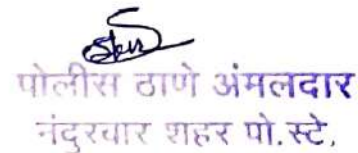 पोलीस ठाणे अंमलदार
नंदुरबार शहर पो.स्टे.